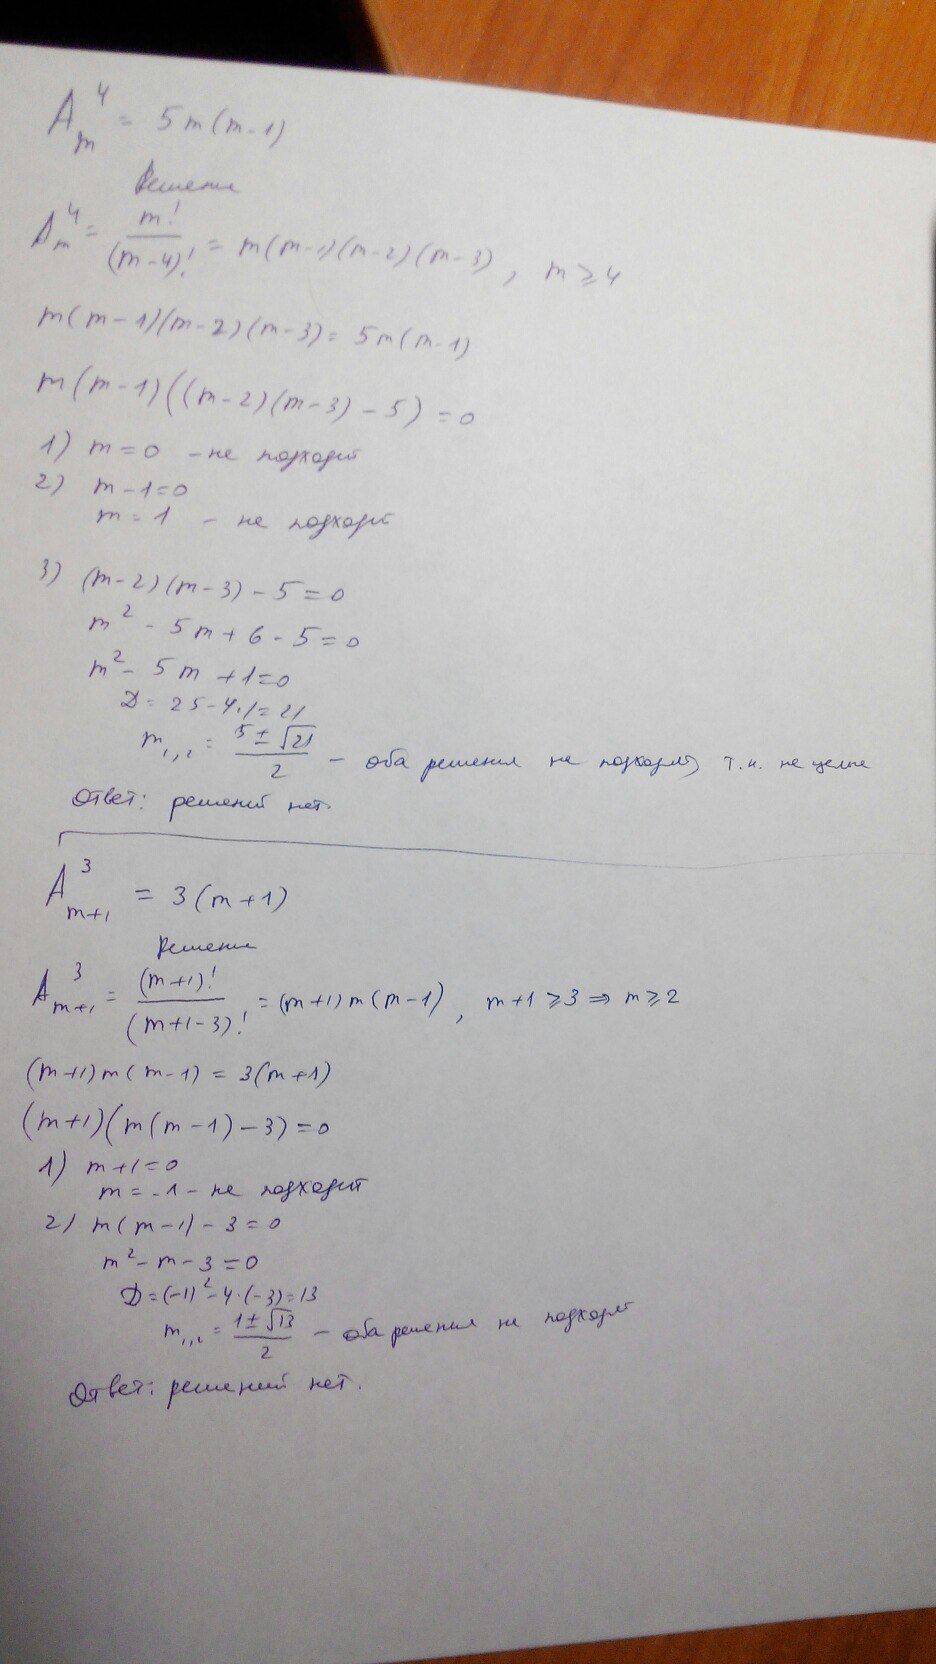 A_m^4 = 5m(m-1)
Решение
A_m^4 = m!/(m-4)! = m(m-1)(m-2)(m-3), m ≥ 4
m(m-1)(m-2)(m-3) = 5m(m-1)
m(m-1)((m-2)(m-3)-5) = 0
1) m=0 - не подходит
2) m-1=0
m=1 - не подходит
3) (m-2)(m-3)-5=0
m^2-5m+6-5=0
m^2-5m+1=0
D=25-4·1=21
m_1,2 = (5±√21)/2 - оба решения не подходят, т.к. не целые
Ответ: решений нет.
A_{m+1}^3 = 3(m+1)
Решение
A_{m+1}^3 = (m+1)!/(m+1-3)! = (m+1)m(m-1), m+1≥3 ⇒ m≥2
(m+1)m(m-1) = 3(m+1)
(m+1)(m(m-1)-3)=0
1) m+1=0
m=-1 - не подходит
2) m(m-1)-3=0
m^2-m-3=0
D=(-1)^2-4·(-3)=13
m_1,2 = (1±√13)/2 - оба решения не подходят
Ответ: решений нет.